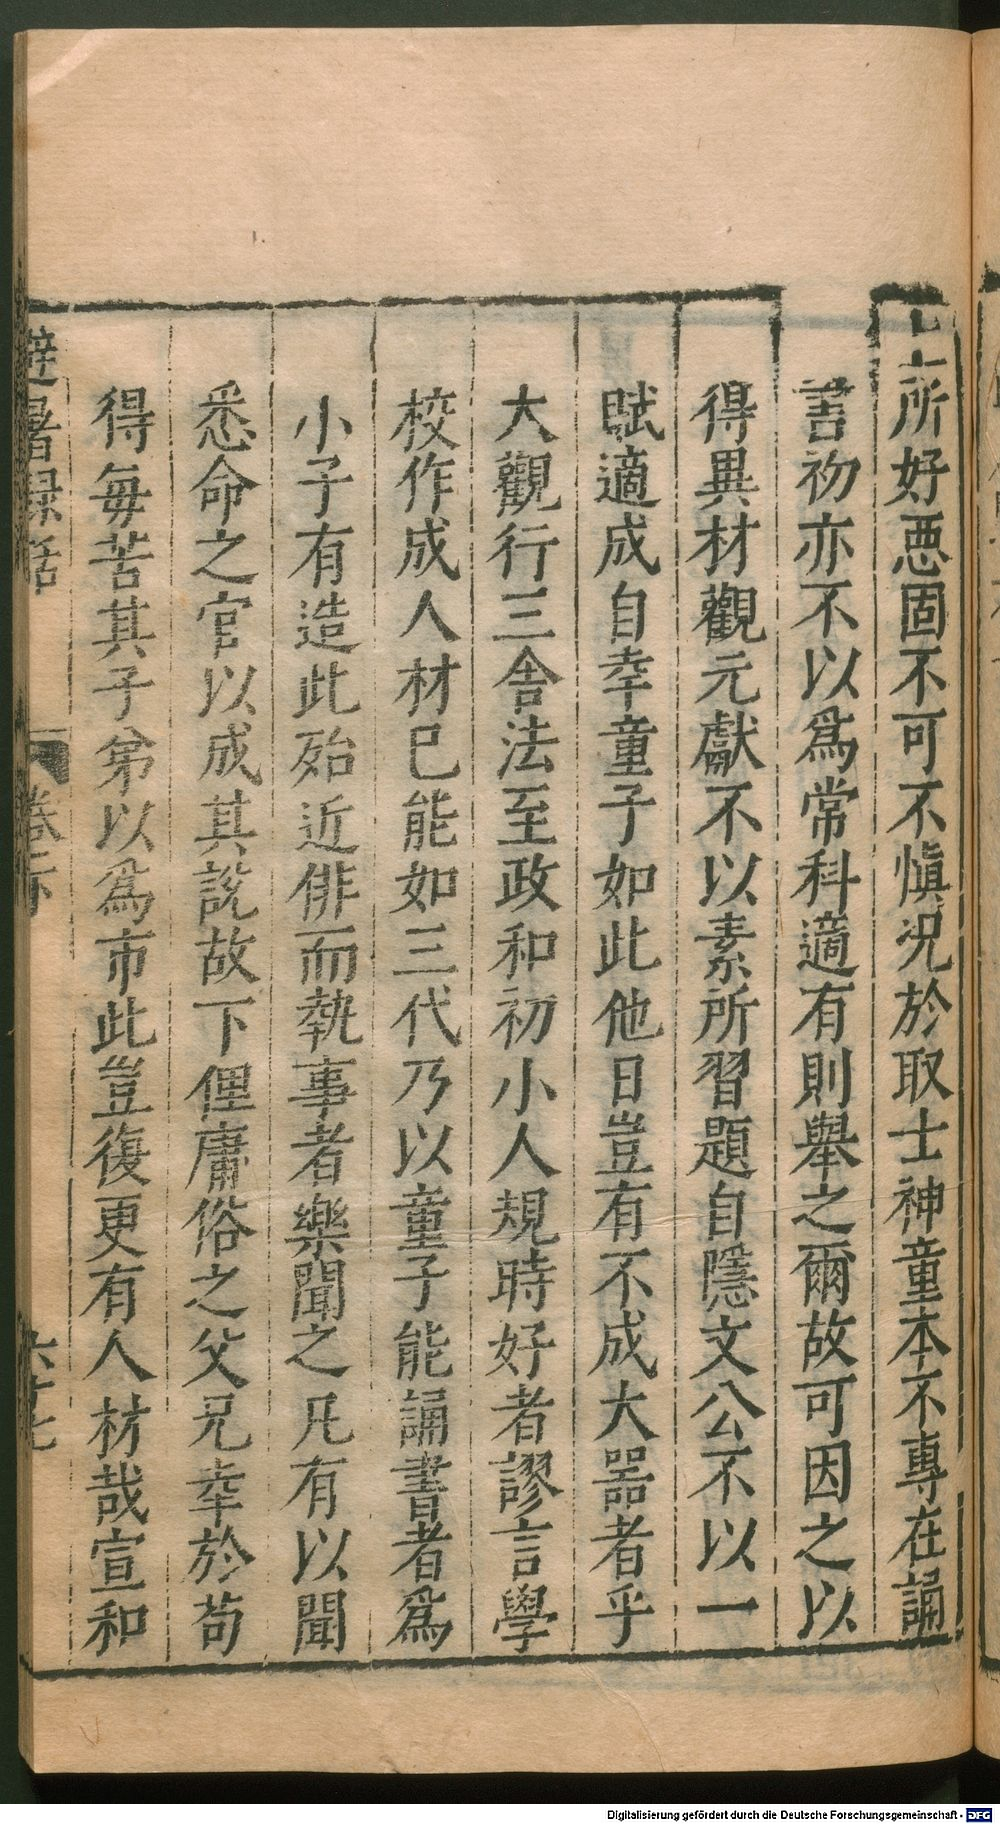 所好惡固不可不愼況於取士神童本不專在誦
書初亦不以爲常科適有則舉之爾故可因之以
得異材觀元獻不以素所習題自隱文公不以一
賦適成自幸童子如此他日豈有不成大器者乎
大觀行三舍法至政和初小人規時好者謬言學
校作成人材已能如三代乃以童子能誦書者爲
小子有造此殆近俳而執事者樂聞之凡有以聞
悉命之官以成其說故下俚庸俗之父兄幸於苟
得每苦其子弟以爲市此豈復更有人材哉宣和
避暑錄話
卷下
六十七
Digitalisierung gefördert durch die Deutsche Forschungsgemeinschaft - DFG